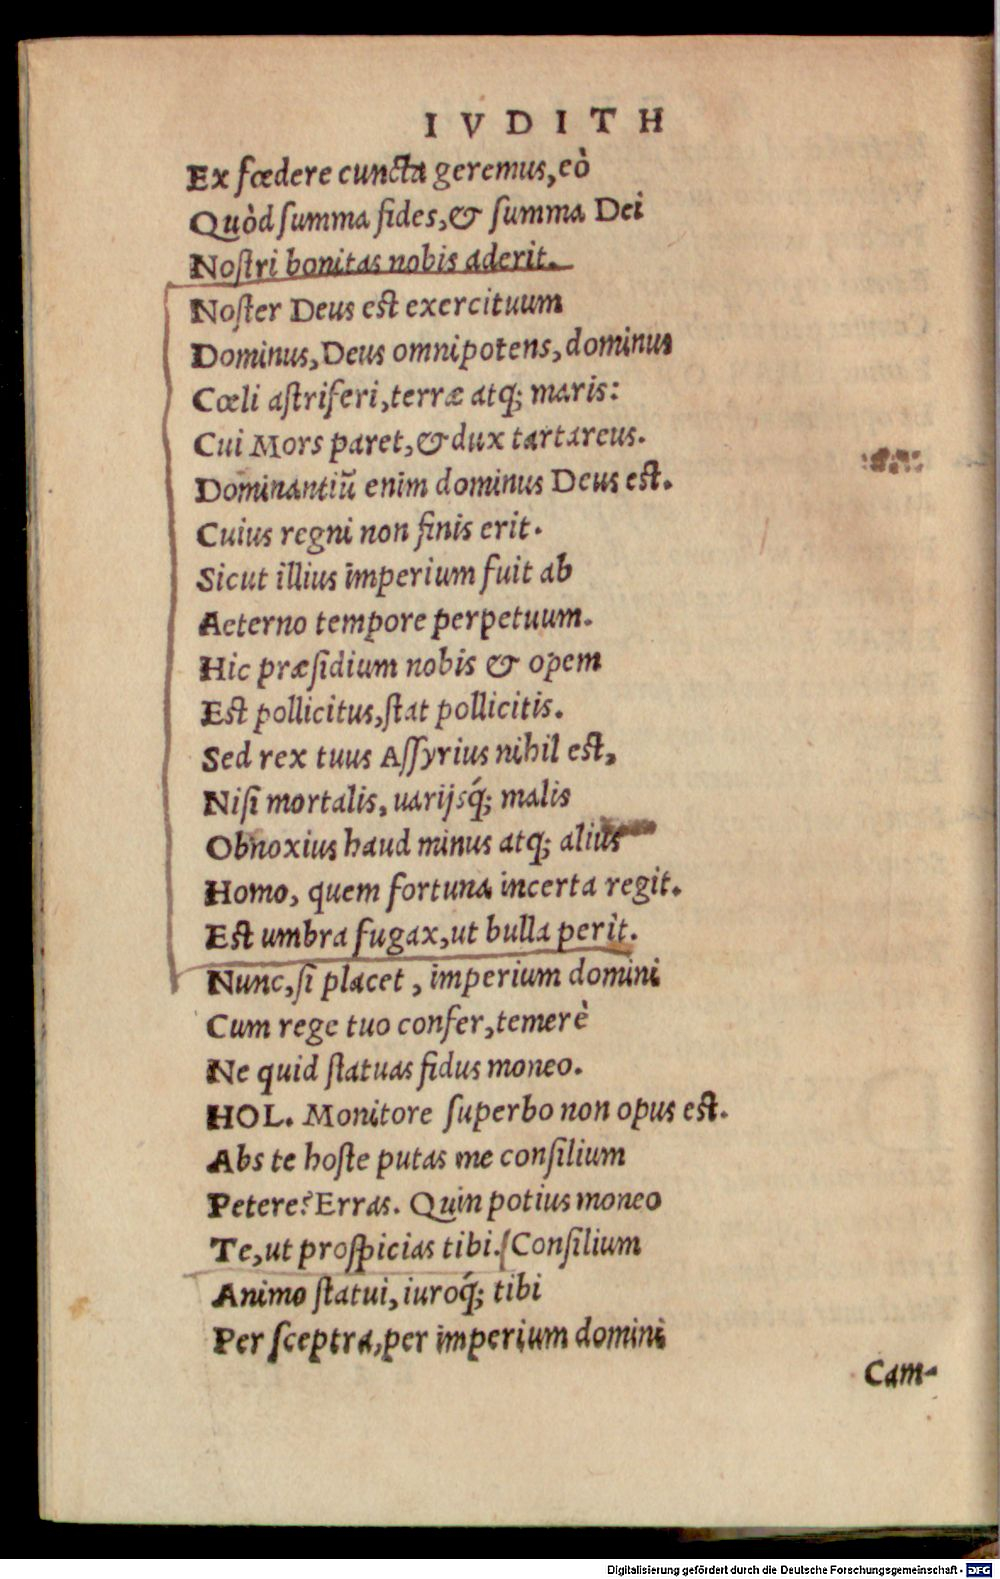 IVDITH
Ex fœdere cuncta geremus, eò
Quòd ſumma fides, & ſumma Dei
Noſtri bonitas nobis aderit.
Noſter Deus est exercituum
Dominus, Deus omnipotens, dominus
Cœli aſtriferi, terræ atq; maris:
Cui Mors paret, & dux tartareus.
Dominantiũ enim dominus Deus est.
Cuius regni non finis erit.
Sicut illius imperium fuit ab
Aeterno tempore perpetuum.
Hic præſidium nobis & opem
Est pollicitus, ſtat pollicitis.
Sed rex tuus Aſſyrius nihil est,
Niſi mortalis, uarijsq́; malis
Obnoxius haud minus atq; alius
Homo, quem fortuna incerta regit.
Est umbra fugax, ut bulla perit.
Nunc, ſi placet, imperium domini
Cum rege tuo confer, temerè
Ne quid ſtatuas fidus moneo.
HOL. Monitore ſuperbo non opus est.
Abs te hoſte putas me conſilium
Petere? Erras. Quin potius moneo
Te, ut proſpicias tibi. Conſilium
Animo ſtatui, iuroq́; tibi
Per ſceptra, per imperium domini
Cam-
Digitalisierung gefördert durch die Deutsche Forschungsgemeinschaft - DFG